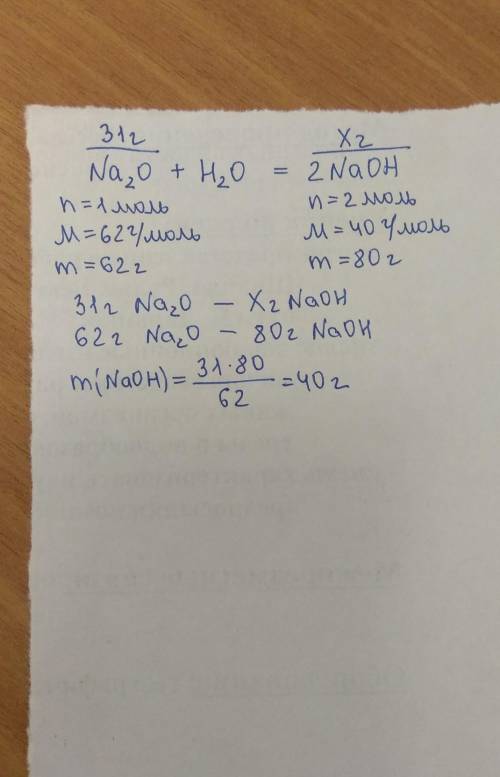 31г Xг
Na₂O + H₂O = 2NaOH
n=1моль n=2моль
M=62г/моль M=40г/моль
m=62г m=80г
31г Na₂O — Xг NaOH
62г Na₂O — 80г NaOH
m(NaOH)= 31·80/62 =40г